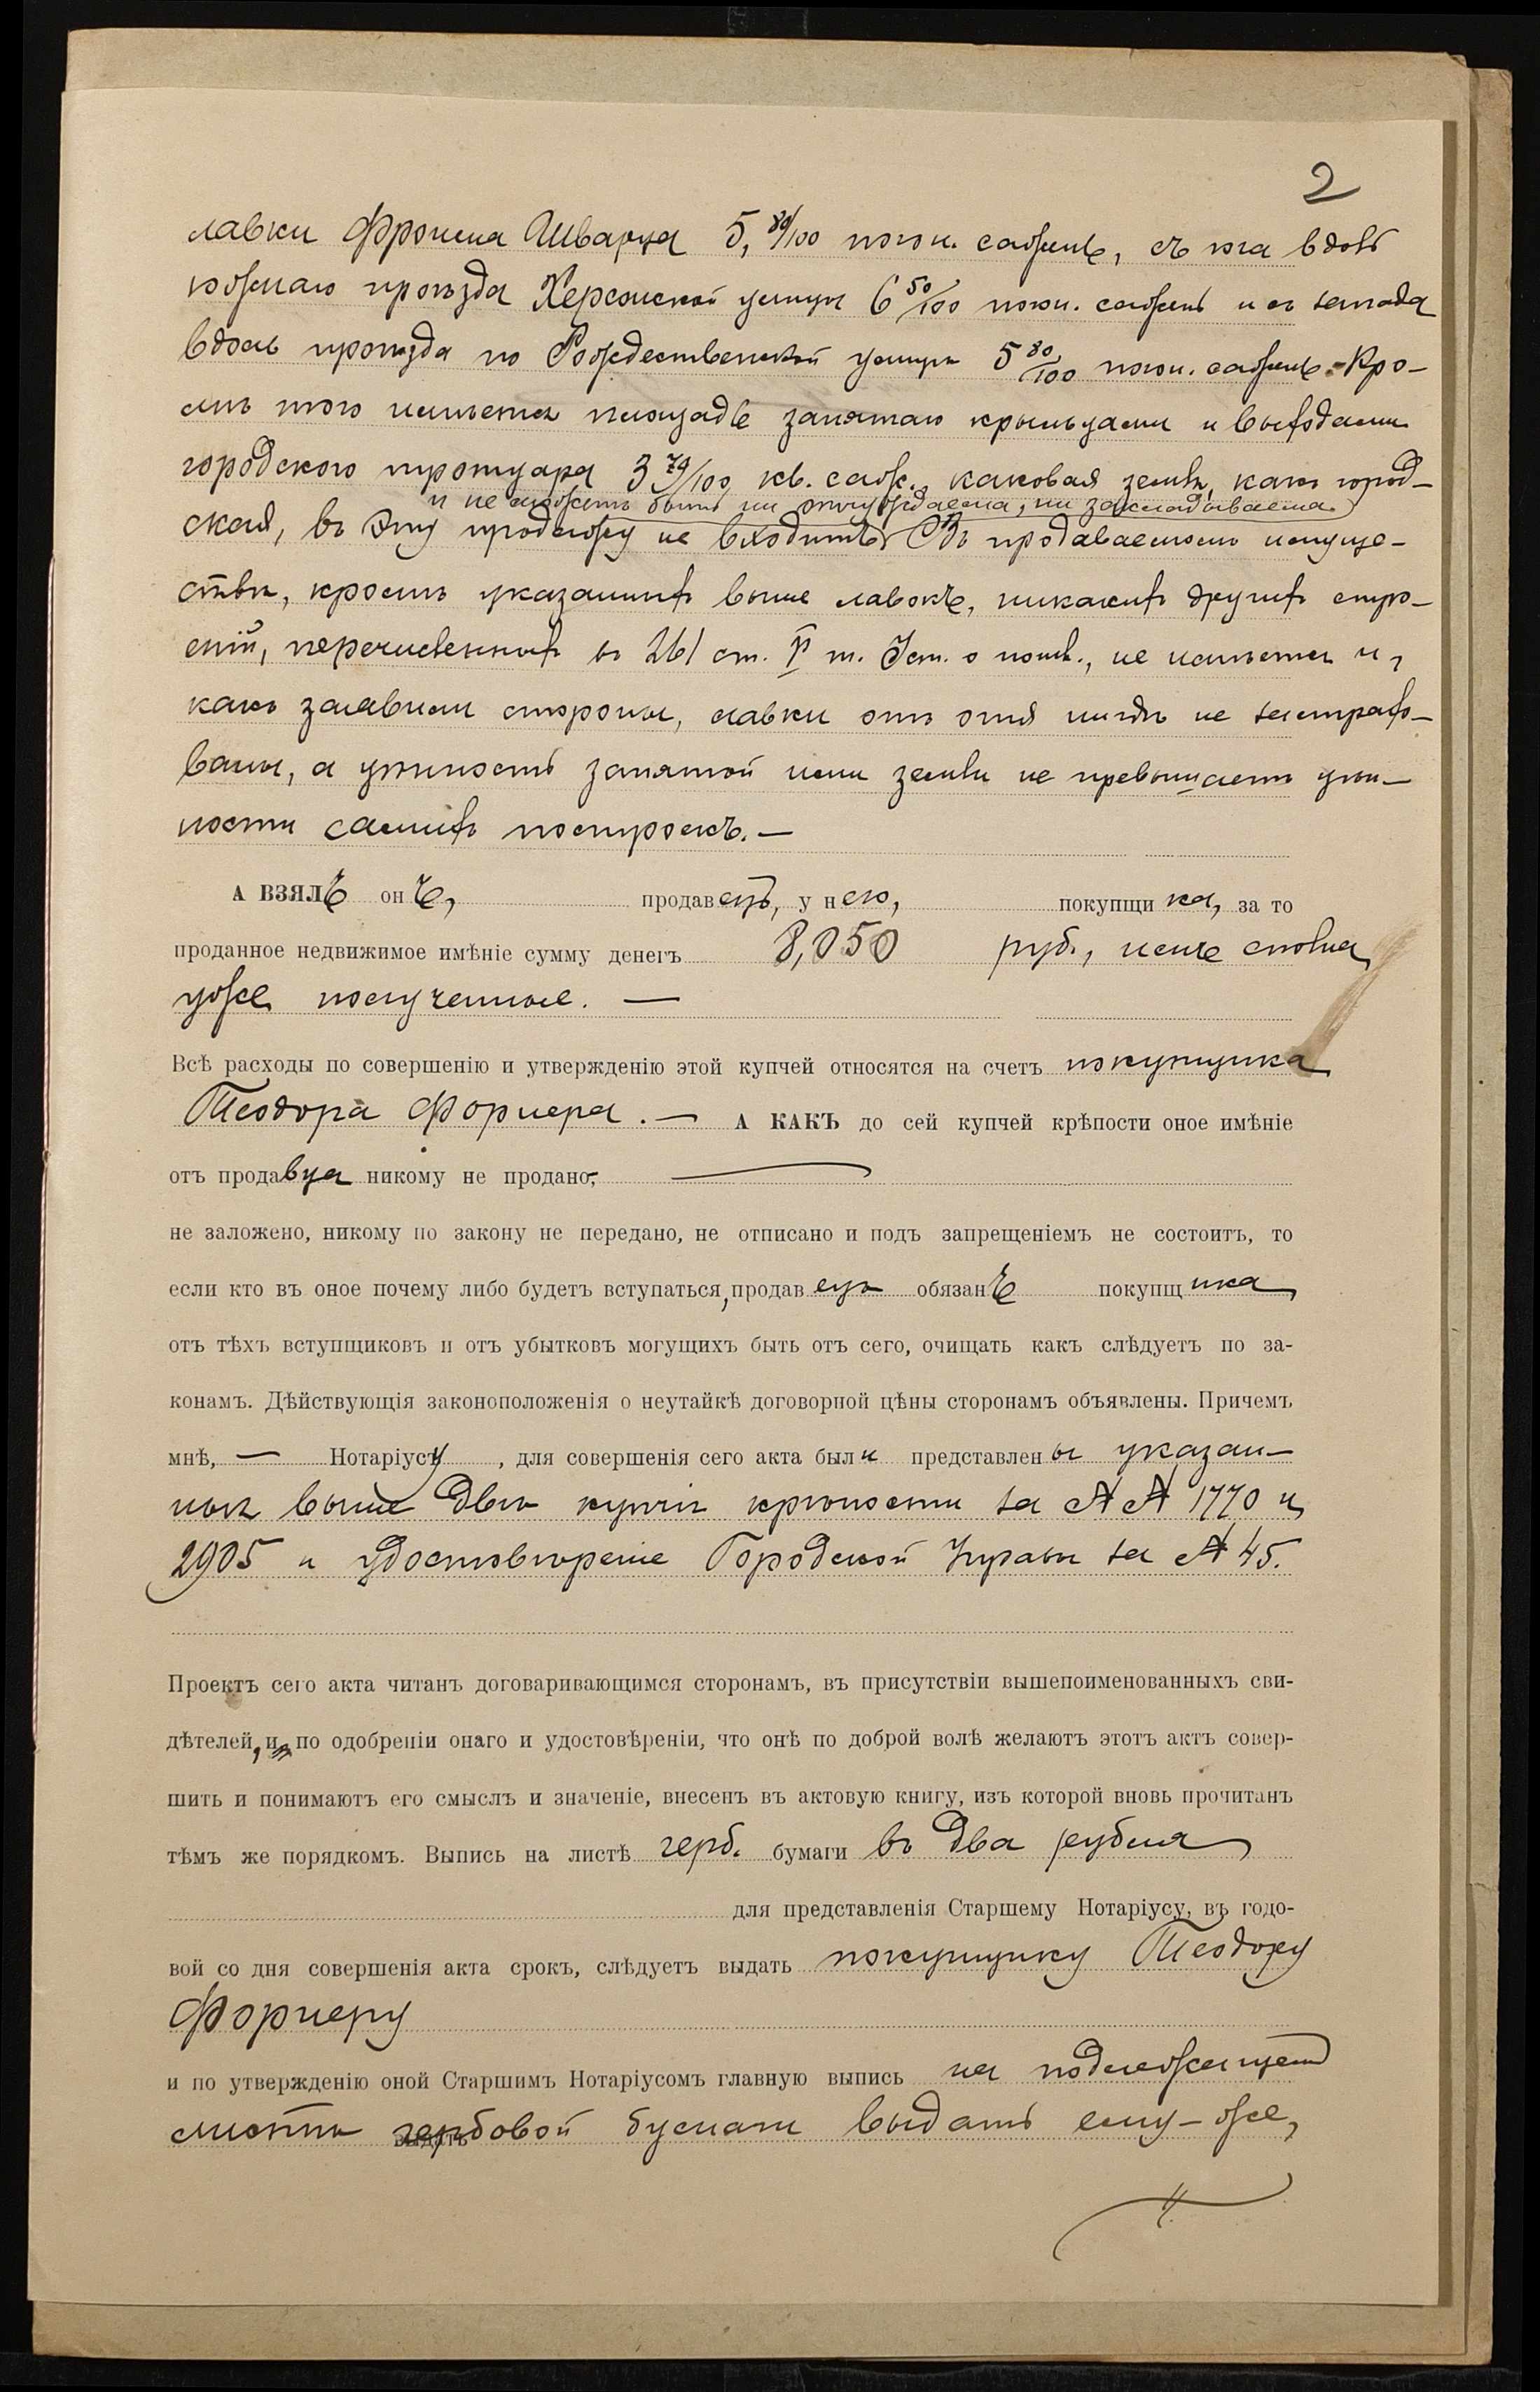 2
лавки Фроима Шварца 5, 80/100 погон. сажень, съ юга вдоль
южнаго проѣзда Херсонской улицы 6 50/100 погон. сажень и съ запада
вдоль проѣзда по Рождественской улицѣ 5 80/100 погон. сажень. Кро-
мѣ того имѣется площадь занятаго крыльцами и выходами
городского тротуара 3 79/100 кв. саж., каковая земля, какъ город-
и не можетъ быть ни отчуждаема, ни закладываема.
ская, въ эту продажу не входитъ Въ продаваемомъ имуще-
ствѣ, кромѣ указанныхъ выше лавокъ, никакихъ другихъ стро-
еній, перечисленныхъ въ 261 ст. V т. Уст. о пошл., не имѣется и,
какъ заявили стороны, лавки отъ огня нигдѣ не застрахо-
ваны, а цѣнность занятой ими земли не превышаетъ цѣн-
ности самихъ построекъ. —
А ВЗЯЛЪ онъ, продавецъ, у него, покупщика, за то
проданное недвижимое имѣніе сумму денегъ 8,050 руб., имъ сполна
уже полученные. —
Всѣ расходы по совершенію и утвержденію этой купчей относятся на счетъ покупщика
Теодора Форнера. — А КАКЪ до сей купчей крѣпости оное имѣніе
отъ продавца никому не продано,
не заложено, никому по закону не передано, не отписано и подъ запрещеніемъ не состоитъ, то
если кто въ оное почему либо будетъ вступаться, продавецъ обязанъ покупщика
отъ тѣхъ вступщиковъ и отъ убытковъ могущихъ быть отъ сего, очищать какъ слѣдуетъ по за-
конамъ. Дѣйствующія законоположенія о неутайкѣ договорной цѣны сторонамъ объявлены. Причемъ
мнѣ, — Нотаріусу , для совершенія сего акта были представлены указан-
ныя выше двѣ купчія крѣпости за №№ 1770 и
2905 и удостовѣреніе Городской Управы за № 45.
Проектъ сего акта читанъ договаривающимся сторонамъ, въ присутствіи вышепоименованныхъ сви-
дѣтелей, и, по одобреніи онаго и удостовѣреніи, что онѣ по доброй волѣ желаютъ этотъ актъ совер-
шить и понимаютъ его смыслъ и значеніе, внесенъ въ актовую книгу, изъ которой вновь прочитанъ
тѣмъ же порядкомъ. Выпись на листѣ герб. бумаги въ два рубля
для представленія Старшему Нотаріусу, въ годо-
вой со дня совершенія акта срокъ, слѣдуетъ выдать покупщику Теодору
Форнеру
и по утвержденію оной Старшимъ Нотаріусомъ главную выпись на подлежащемъ
листѣ гербовой бумаги выдать ему-же,
выдать